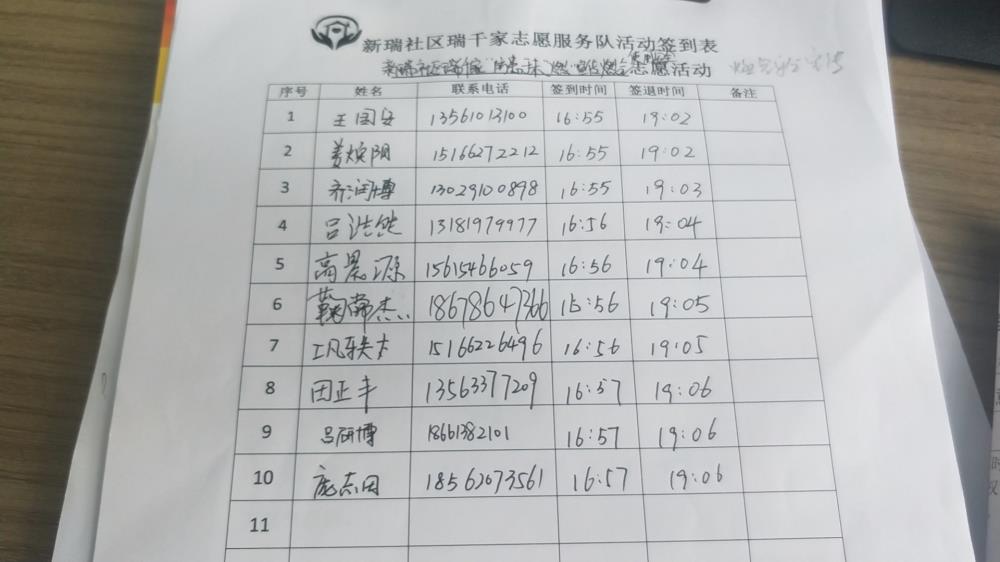 新瑞社区瑞千家志愿服务队活动签到表
志愿活动
序号 姓名 联系电话 签到时间 签退时间 备注
1 王国安 13561013100 16:55 19:02
2 姜焕阴 15166272212 16:55 19:02
3 齐润博 13029100898 16:55 19:03
4 吕浩然 13181979977 16:56 19:04
5 高晨源 15615466059 16:56 19:04
6 鞠常杰 18678647366 16:56 19:05
7 15166226496 16:56 19:05
8 田正丰 13563377209 16:57 19:06
9 吕研博 18661382101 16:57 19:06
10 庞志田 18562073561 16:57 19:06
11